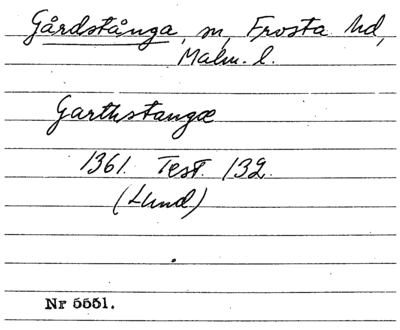 Gårdstånga, sn, Frosta hd,
Malm. l.
Garthstangæ
1361. Test. 132.
(Lund)
Nr 5551.